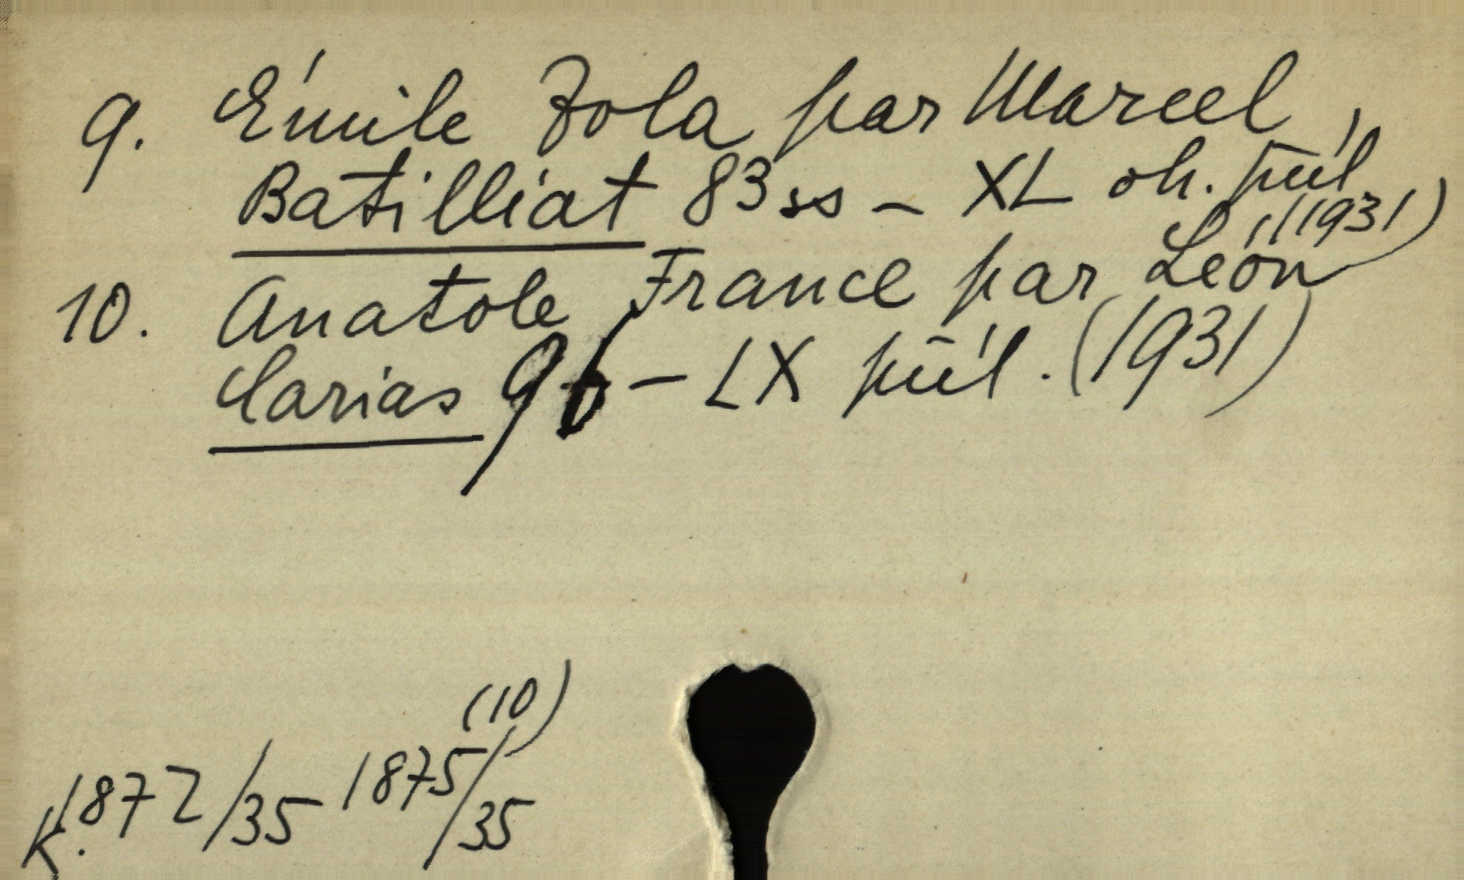 9. Émile Zola par Marcel
Batilliat 83 ss – XL oh. püül
(1931)
10. Anatole France par Léon
Carias 96 – LX püül. (1931)
(10)
K. 1872/35 1875/35